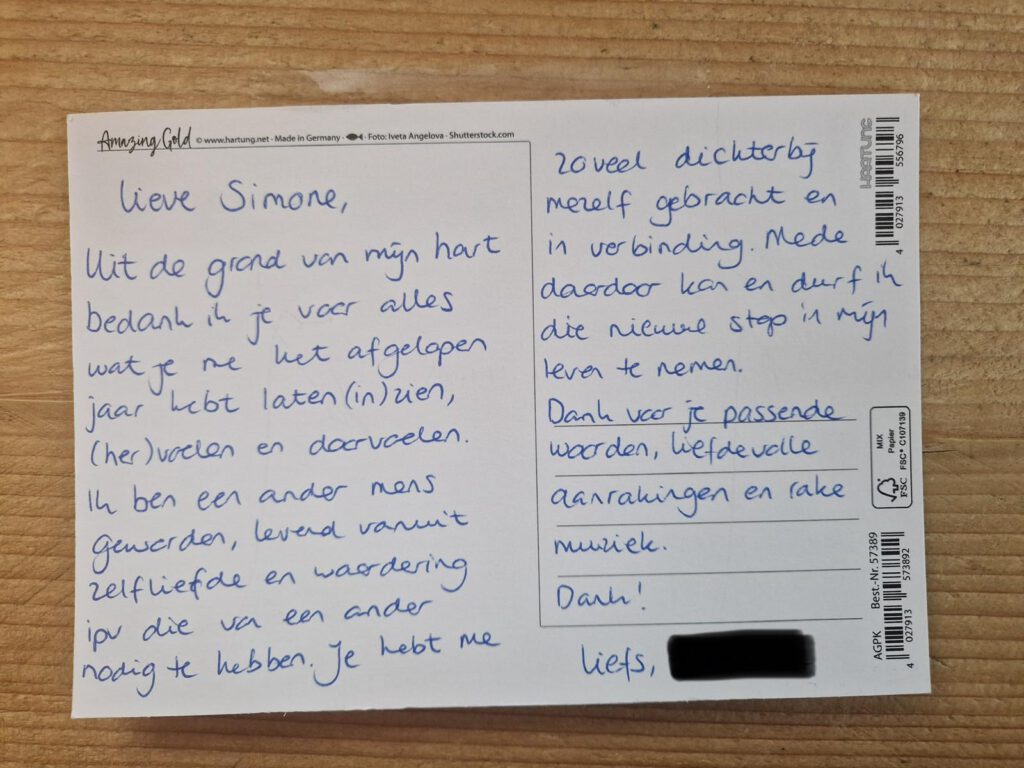 Amazing Gold © www.hartung.net · Made in Germany · Foto: Iveta Angelova · Shutterstock.com
Lieve Simone,
Uit de grond van mijn hart
bedank ik je voor alles
wat je me het afgelopen
jaar hebt laten (in)zien,
(her)voelen en doorvoelen.
Ik ben een ander mens
geworden, levend vanuit
zelfliefde en waardering
ipv die van een ander
nodig te hebben. Je hebt me
zoveel dichterbij
mezelf gebracht en
in verbinding. Mede
daardoor kan en durf ik
die nieuwe stap in mijn
leven te nemen.
Dank voor je passende
woorden, liefdevolle
aanrakingen en rake
muziek.
Dank!
Liefs,
HARTUNG
4 027913 556796
MIX
Papier
FSC® C107139
FSC
AGPK Best.-Nr. 57389
4 027913 573892